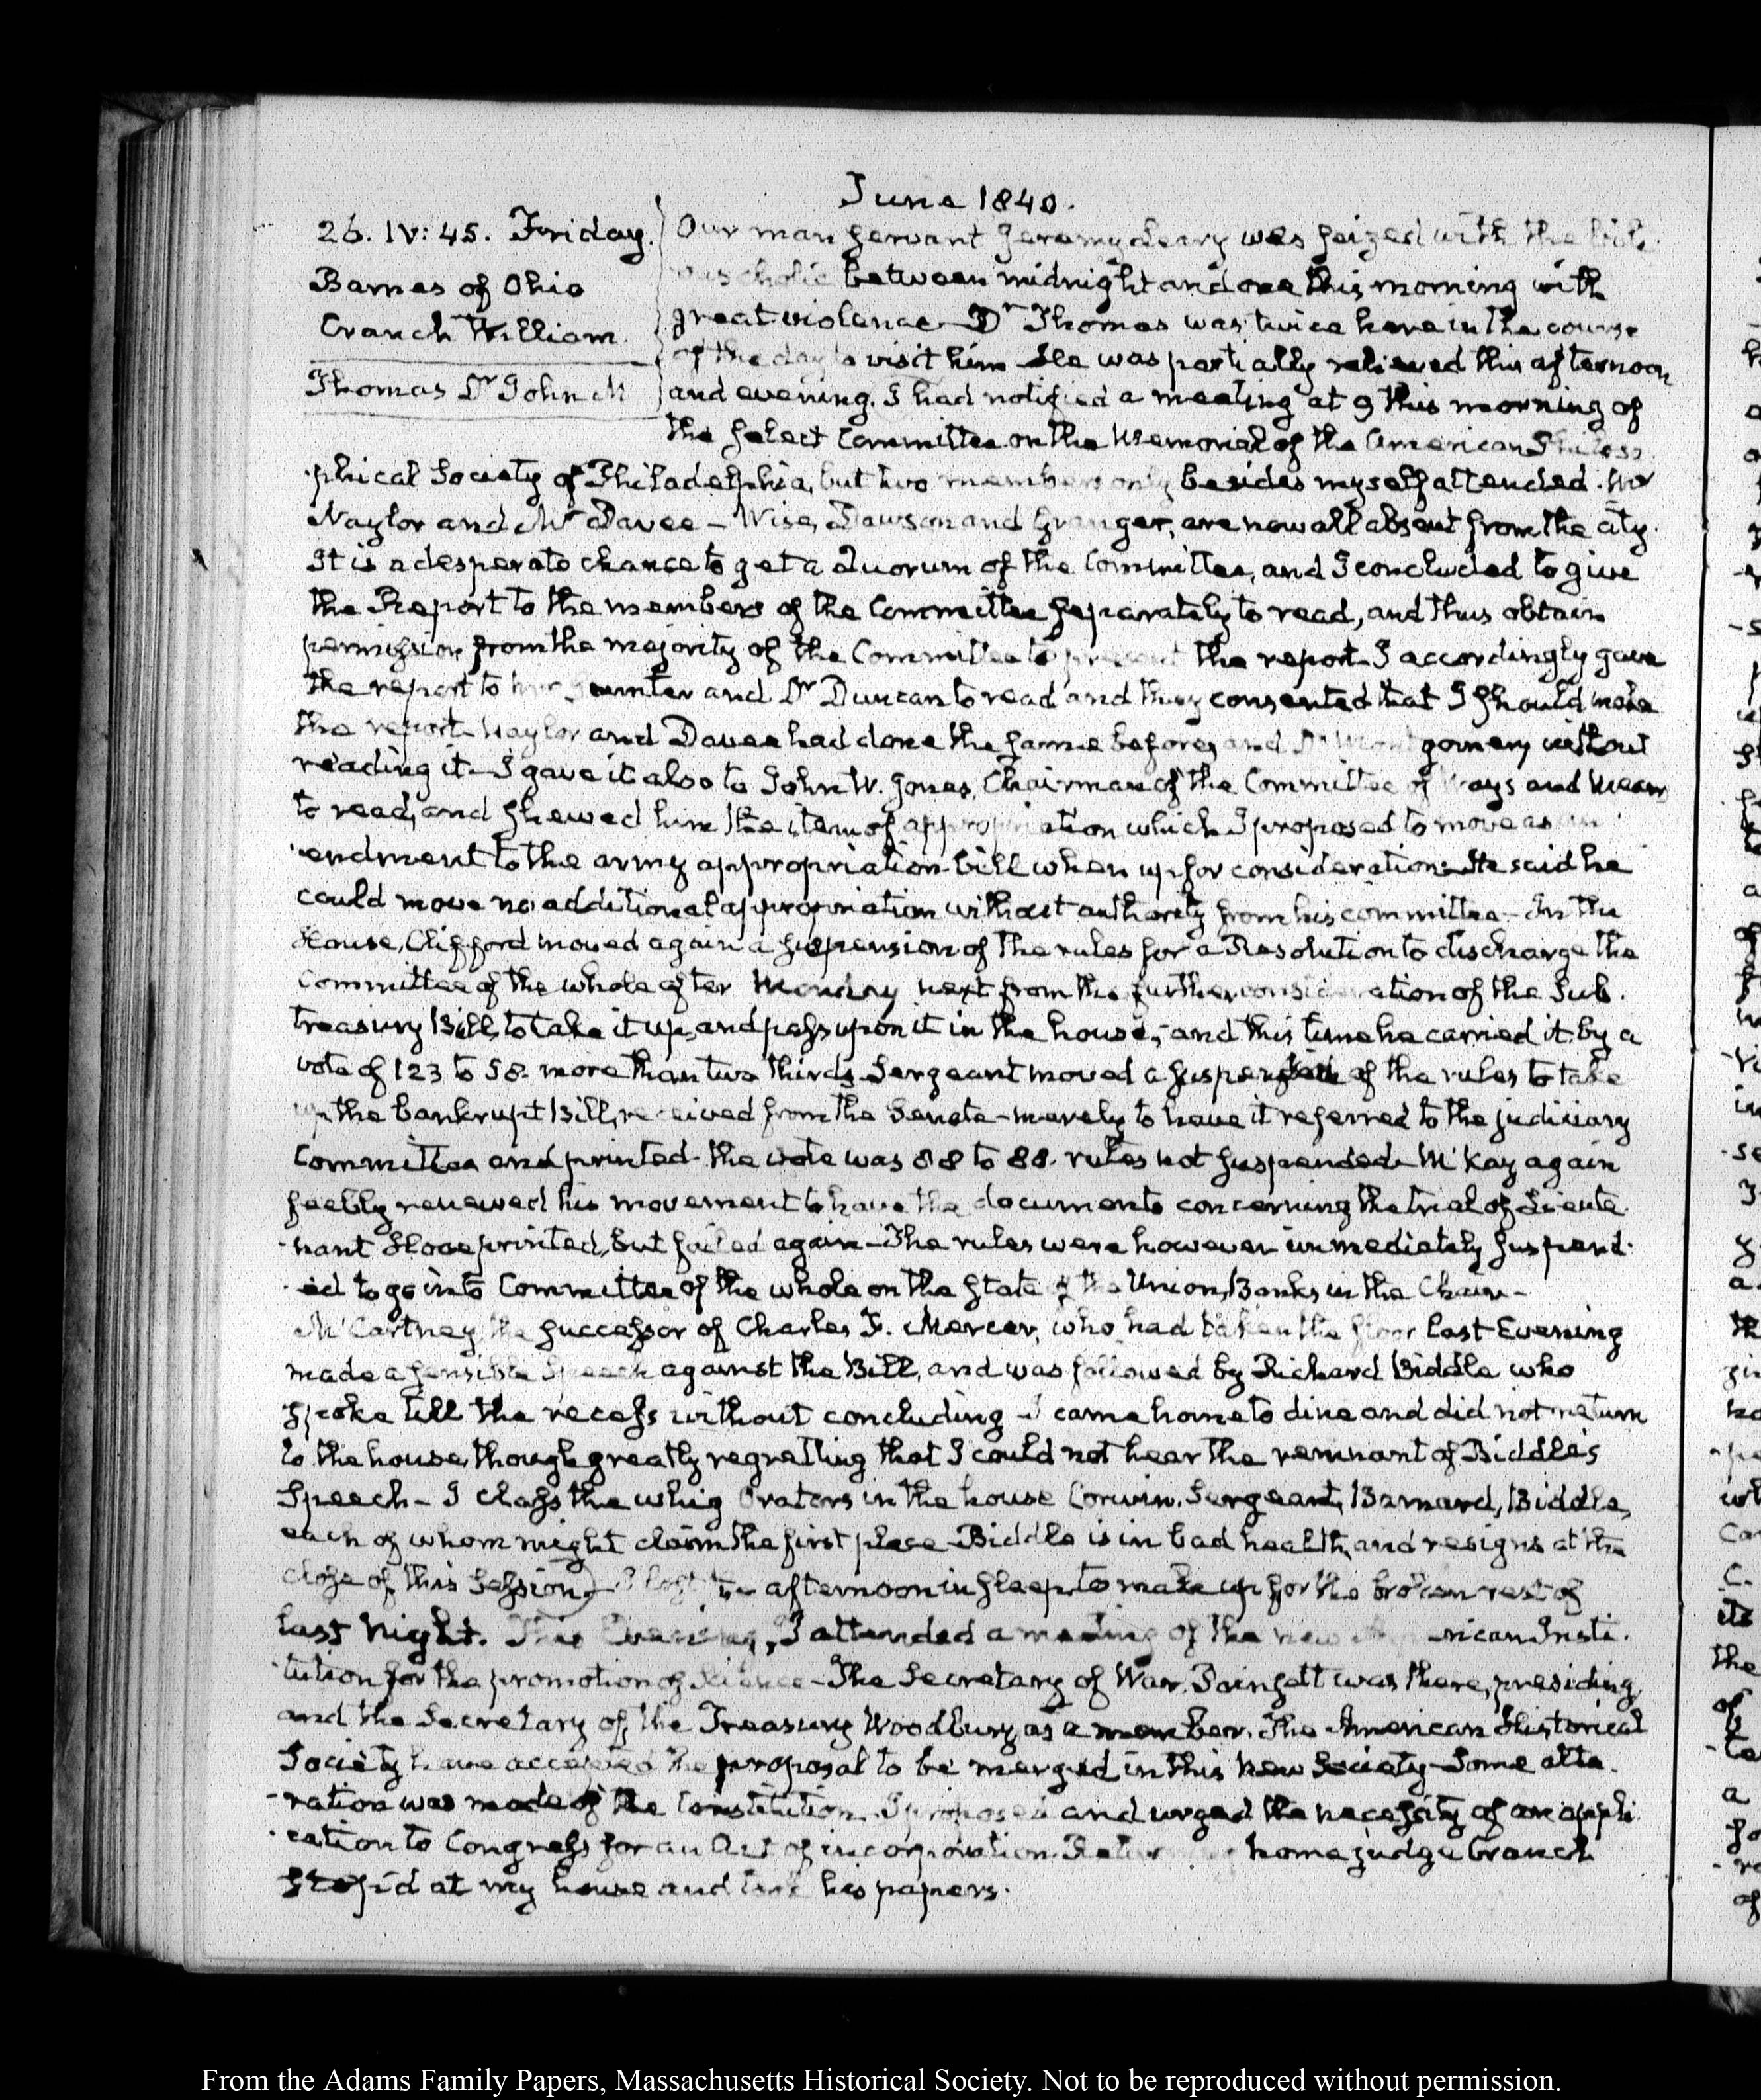 June 1840.
26. IV: 45. Friday.
Barnes of Ohio
Cranch William
Thomas Dr John M
Our man servant Jeremy Leary was seized with the bili-
ous cholic between midnight and one this morning with
great violence. Dr Thomas was twice here in the course
of the day to visit him. He was partially relieved this afternoon
and evening. I had notified a meeting at 9 this morning of
the Select Committee on the Memorial of the American Philoso-
-phical Society of Philadelphia, but two members only besides myself attended. Mr
Naylor and Mr Davee - Wise, Dawson and Granger, are now all absent from the city.
It is a desperate chance to get a Quorum of the Committee, and I concluded to give
the Report to the members of the Committee separately to read, and thus obtain
permission from the majority of the Committee to present the report. I accordingly gave
the report to and Dr Duncan to read and they consented that I should make
the report. Naylor and Davee had done the same before, and Dr Montgomery without
reading it. I gave it also to John W. Jones, Chairman of the Committee of Ways and Means
to read, and shewed him the item of appropriation which I proposed to move as an
-endment to the army appropriation bill when up for consideration. He said he
could move no additional appropriation without authority from his committee. In the
House, Clifford moved again a suspension of the rules for a Resolution to discharge the
Committee of the whole after Monday next from the further consideration of the Sub.
treasury Bill, to take it up, and pass upon it in the house; and this time he carried it by a
vote of 123 to 58. more than two thirds. Sergeant moved a suspension of the rules to take
up the bankrupt Bill, received from the Senate - merely to have it referred to the judiciary
Committee and printed. the vote was 88 to 88. rules not suspended. McKay again
feebly renewed his movement to have the documents concerning the trial of Lieute-
-nant Hooe printed, but failed again - The rules were however immediately suspend-
-ed to go into Committee of the whole on the State of the Union, Banks in the Chair -
McCartney, the successor of Charles F. Mercer, who had taken the floor last Evening
made a sensible Speech against the Bill, and was followed by Richard Biddle who
spoke till the recess without concluding - I came home to dine and did not return
to the house, though greatly regretting that I could not hear the remnant of Biddle's
Speech - I class the whig Orators in the house Corwin, Sergeant, Barnard, Biddle,
each of whom might claim the first place. Biddle is in bad health, and resigns at the
close of this Session) - I lost the afternoon in sleep, to make up for the broken rest of
last night. This Evening, I attended a meeting of the new American Insti-
-tution for the promotion of Science - The Secretary of War, Poinsett was there, presiding
and the Secretary of the Treasury Woodbury, as a member. The American Historical
Society have accepted the proposal to be merged in this new Society - Some alte-
-ration was made of the Constitution. I proposed and urged the necessity of an appli-
-cation to Congress for an Act of incorporation. Returning home judge Cranch
stop'd at my house and took his papers.